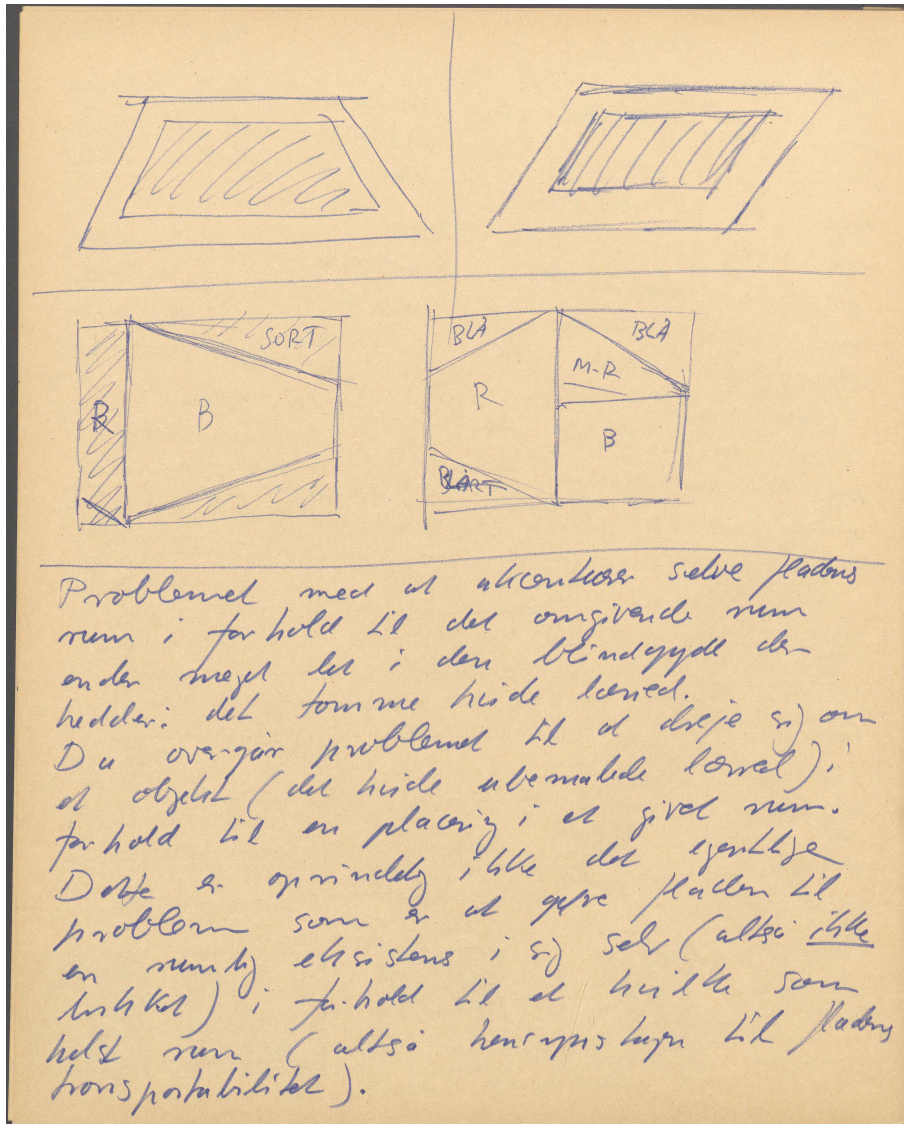 SORT
B
B
BLÅ
BLÅ
M-R
R
B
SORT
Problemet med at akcentuere selve fladens
rum i forhold til det omgivende rum
ender meget let i den blindgyde der
hedder: det tomme hvide lærred.
Da overgår problemet til at dreje sig om
et objekt (det hvide ubemalede lærred) i
forhold til en placering i et givet rum.
Dette er oprindelig ikke det egentlige
problem som er at gøre fladen til
en rumlig eksistens i sig selv (altså ikke
) i forhold til et hvilke som
helst rum (altså til fladens
transportabilitet).